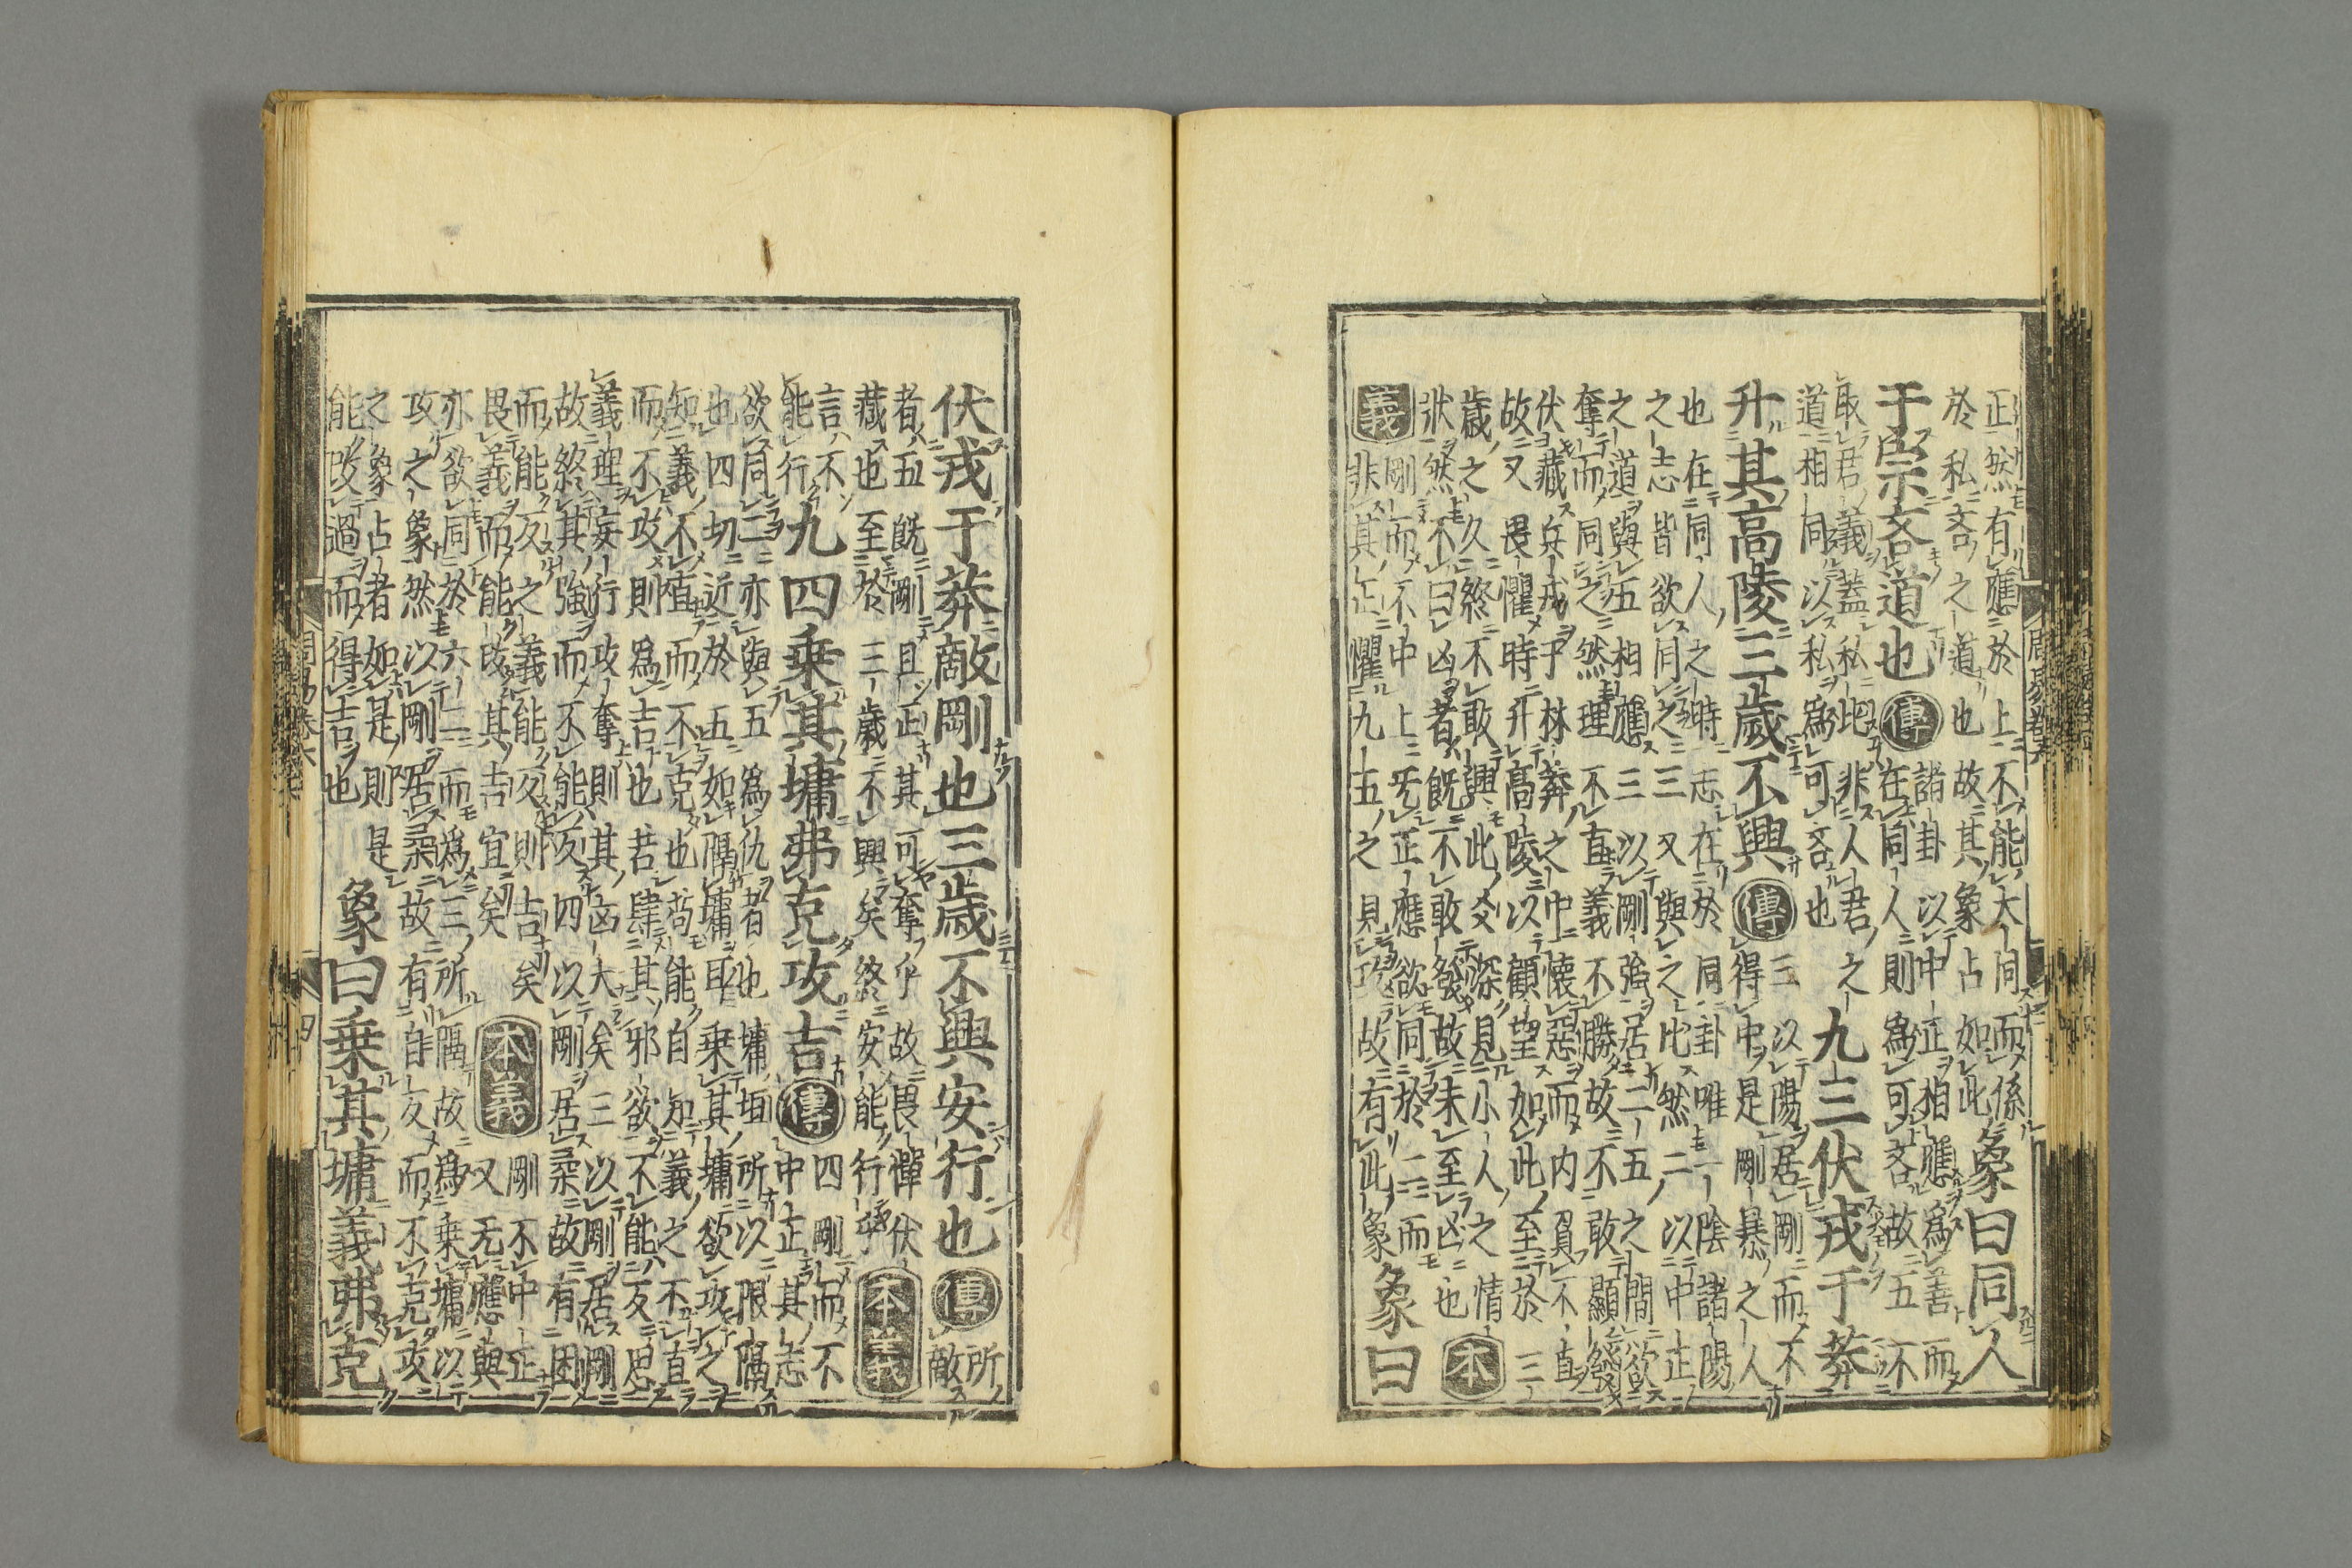 正然有應於上不能大同而係
於私吝之道也故其象占如此
象曰同人
于宗吝道也
傳
諸卦以中正相應為善而
在同人則為可吝故五不
取君義蓋私比非人君之
道相同以私為可吝也
九三伏戎于莽
升其高陵三歲不興
傳
三以陽居剛而不
得中是剛暴之人
也在同人之時志在於同卦唯一陰諸陽
之志皆欲同之三又與之比然二以中正
之道與五相應三以剛強居二五之間欲
奪而同之然理不直義不勝故不敢顯發
伏藏兵戎于林莽之中懷惡而内負不直
故又畏懼時升高陵以顧望如此至於三
歲之久終不敢興此爻深見小人之情
狀然不曰凶者既不敢發故未至凶也
本
義
剛而不中上无正應欲同於二而
非其正懼九五之見攻故有此象
象曰
伏戎于莽敵剛也三歲不興安行也
傳
所
敵
者五既剛且正其可奪乎故畏憚伏
藏也至於三歲不興矣終安能行乎
本義
言不
能行
九四乗其墉弗克攻吉
傳
四剛而不
中正其志
欲同二亦與五為仇者也墉垣所以限隔
也四切近於五如隔墉耳乗其墉欲攻之
知義不直而不克也苟能自知義之不直
而不攻則為吉也若肆其邪欲不能反思
義理妄行攻奪則其凶大矣三以剛居剛
故終其強而不能反四以剛居柔故有困
而能反之義能反則吉矣
畏義而能改其吉宜矣
本義
剛不中正
又无應與
亦欲同於六二而為三所隔故為乗墉以
攻之象然以剛居柔故有自反而不克攻
之象占者如是則是
能改過而得吉也
象曰乗其墉義弗克
周易卷六